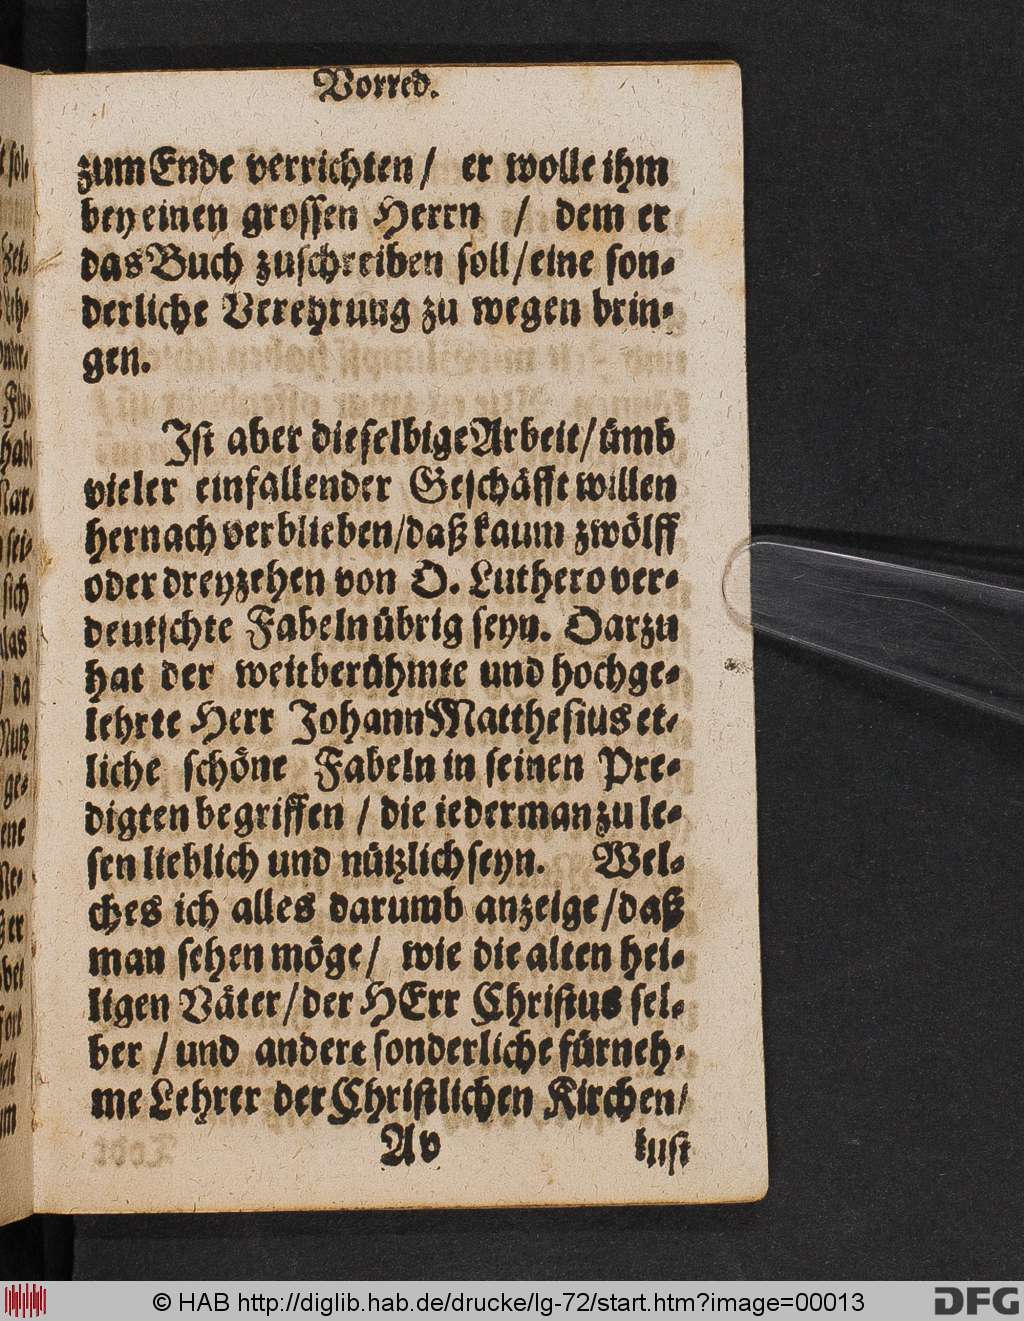 Vorred.
zum Ende verrichten / er wolle ihm
bey einen grossen Herrn / dem er
das Buch zuschreiben soll / eine son-
derliche Verehrung zu wegen brin-
gen.
Ist aber dieselbige Arbeit / ümb
vieler einfallender Geschäfft willen
hernach verblieben / daß kaum zwölff
oder dreyzehen von D. Luthero ver-
deutschte Fabeln übrig seyn. Darzu
hat der weitberühmte und hochge-
lehrte Herr Johann Matthesius et-
liche schöne Fabeln in seinen Pre-
digten begriffen / die iederman zu le-
sen lieblich und nützlich seyn. Wel-
ches ich alles darumb anzeige / daß
man sehen möge / wie die alten hei-
ligen Väter / der HErr Christus sel-
ber / und andere sonderliche fürneh-
me Lehrer der Christlichen Kirchen /
A v
lust
© HAB http://diglib.hab.de/drucke/lg-72/start.htm?image=00013
DFG